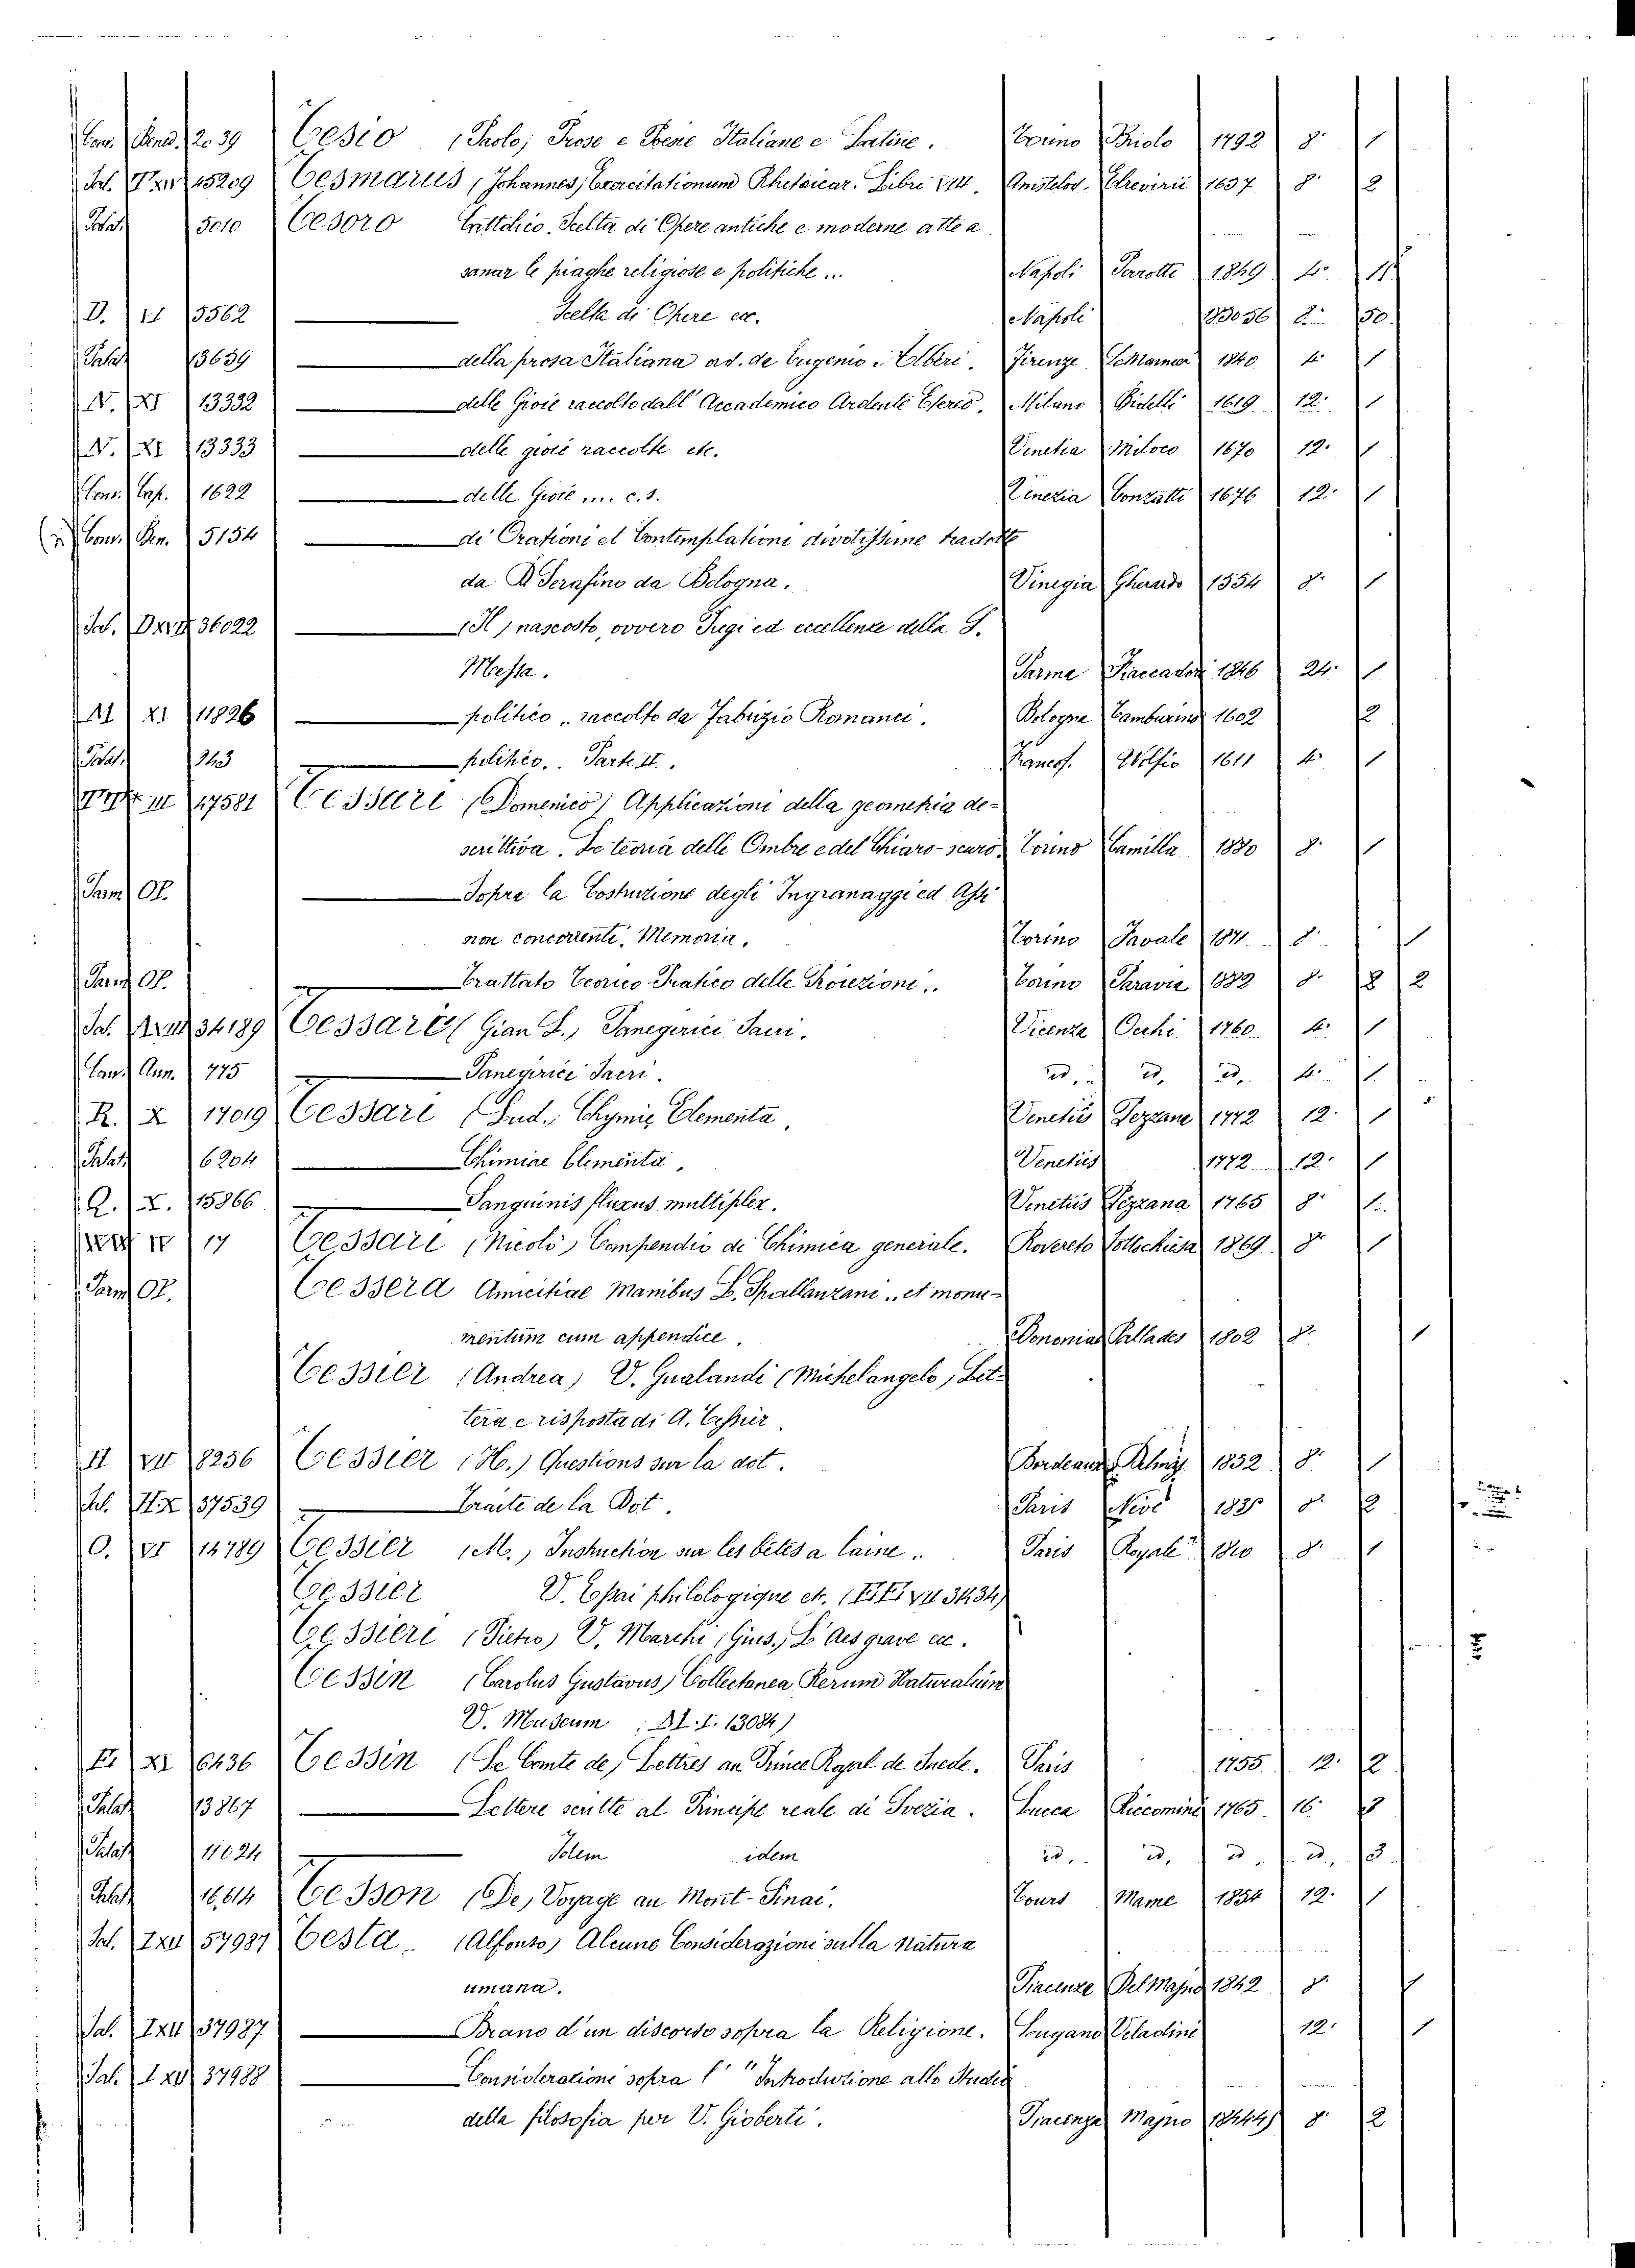 Conv. Bened. 2o 39 Tesio (Paolo) Prose e Poesie Italiane e Latine. Torino Briolo 1792 8º 1
45209 Tesmarus (Johannes) Exercitationum Rhetoricar. Libri VIII. Amstelod. Elzevirii 1657 8º 2
Palat. 5010 Tesoro Cattolico. Scelta di Opere antiche e moderne atte a
sanar le piaghe religiose e politiche... Napoli Perrotti 1849 4º 11
D. 13562 Scelta di Opere ecc. Napoli 183056 8º 50
Palat. 13639 della prosa Italiana ad. da Eugenio Alberi. Firenze 1840 4º 1
N. XI 13332 delle Gioie raccolto dall' Accademico Ardente Eterio. Milano Bidelli 1619 12º 1
N. XI 13333 delle gioie raccolte etc. Venetia Miloco 1670 12º 1
Conv. Cap. 1622 delle Gioie .... c. s. Venezia Conzatti 1676 12º 1
Conv. Ben. 5154 di Orationi et Contemplationi divotissime tradotte
da D. Serafino da Bologna. Vinegia Gherardo 1554 8º 1
Sal. 36022 (Il) nascosto, ovvero Pregi ed eccellenze della S.
Messa. Parma Fiaccadori 1846 24º 1
XI 11826 politico .. raccolto da Fabrizio Romanci. Bologna Tamburini 1602 2
Palat. 243 politico.. Parte II. Francof. 1611 4º 1
III 17581 Tessari (Domenico) Applicazioni della geometria de-
scrittiva. La teoria delle Ombre e del Chiaro-scuro. Torino Camilla 1880 8º 1
Parm. Op. Sopra la Costruzione degli Ingranaggi ed Assi
non concorrenti. Memoria. Torino Favale 1871 8º 1
Parm. Op. Trattato Teorico Pratico delle Proiezioni.. Torino Paravia 1882 8º 2 2
Sal. 34189 Tessari (Gian L.) Panegirici Sacri. Vicenza Occhi 1760 4º 1
Conv. Ann. 775 Panegirici Sacri. id. id. id. 4º 1
R. X 17019 Tessari (Lud.) Chymiæ Elementa. Venetiis Pezzana 1772 12º 1
Palat. 6204 Chimiae Elementa. Venetiis 1772 12º 1
Q. X. 15866 Sanguinis fluxus multiplex. Venetiis Pezzana 1765 8º 1
IV 17 Tessari (Nicolò) Compendio di Chimica generale. Rovereto Sottochiesa 1869 8º 1
Parm. Op. Tessera Amicitiae Manibus L. Spallanzani.. et monu-
mentum cum appendice. Bononiae Pallades 1802 8º 1
Tessier (Andrea) V. Gualandi (Michelangelo) Let-
tera e risposta di A. Tessier.
II VII 8256 Tessier (H.) Questions sur la dot. Bordeaux 1852 8º 1
Sal. 37539 Traité de la Dot. Paris Nève 1835 8º 2
O. VI 14789 Tessier (M.) Instruction sur les bêtes a laine.. Paris Royale 1810 8º 1
Tessier V. Essai philologique et. (EE VII 3434)
Tessieri (Pietro) V. Marchi (Gius.) L'Aes grave ecc.
Tessin (Carolus Gustavus) Collectanea Rerum Naturalium
V. Museum . 13084)
XI 6436 Tessin (Le Comte de) Lettres au Prince Royal de Suede. Paris 1755 12º 2
Palat. 13867 Lettere scritte al Principe reale di Svezia. Lucca Riccomini 1765 16º
Palat. 11024 Idem idem id. id. id. id. 3
Palat. 16614 Tesson (De) Voyage au Mont-Sinai. Tours Mame 1854 12º 1
Sal. 57981 Testa.. (Alfonso) Alcune Considerazioni sulla natura
umana. Piacenza Del Majno 1842 8º 1
Sal. 37987 Brano d'un discorso sopra la Religione. Lugano Veladini 12º 1
Sal. 37988 Considerazioni sopra l' "Introduzione allo Studio
della filosofia per V. Gioberti. Piacenza Majno 18444) 8º 2